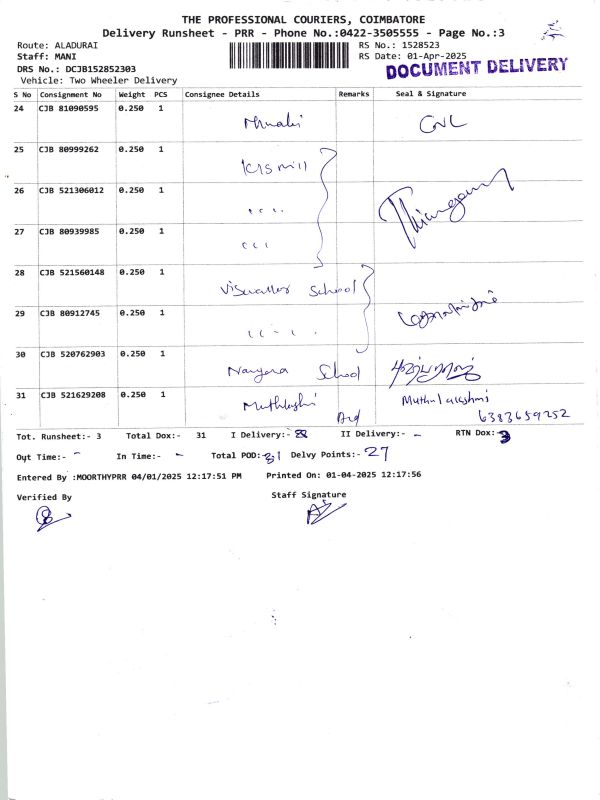 THE PROFESSIONAL COURIERS, COIMBATORE
Delivery Runsheet - PRR - Phone No.:0422-3505555 - Page No.:3
Route: ALADURAI RS No.: 1528523
Staff: MANI RS Date: 01-Apr-2025
DRS No.: DCJB152852303 DOCUMENT DELIVERY
Vehicle: Two Wheeler Delivery
S No Consignment No Weight PCS Consignee Details Remarks Seal & Signature
24 CJB 81090595 0.250 1
25 CJB 80999262 0.250 1
26 CJB 521306012 0.250 1
27 CJB 80939985 0.250 1
28 CJB 521560148 0.250 1 School
29 CJB 80912745 0.250 1
30 CJB 520762903 0.250 1 School
31 CJB 521629208 0.250 1 Muthulakshmi
6383659252
Tot. Runsheet:- 3 Total Dox:- 31 I Delivery:- II Delivery:- - RTN Dox:- 3
Out Time:- - In Time:- - Total POD:- 31 Delvy Points:- 27
Entered By :MOORTHYPRR 04/01/2025 12:17:51 PM Printed On: 01-04-2025 12:17:56
Verified By Staff Signature